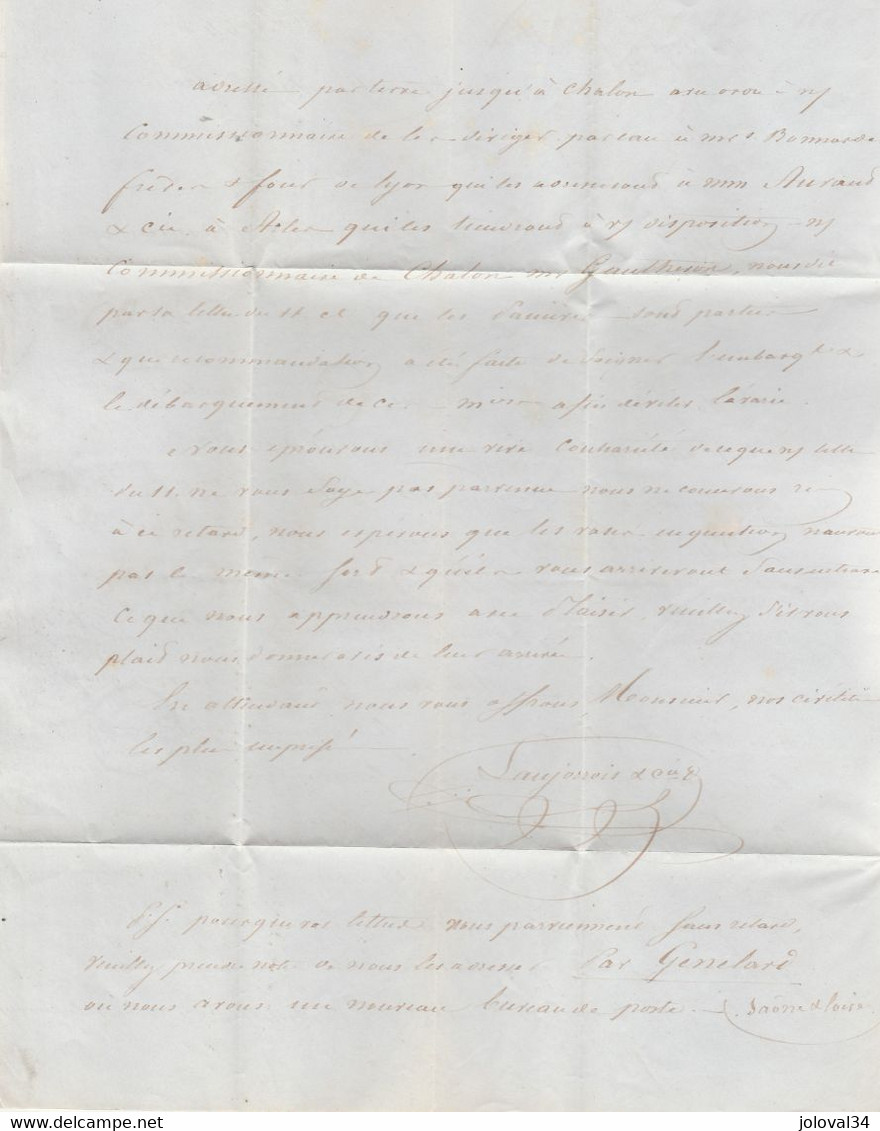 adressé par terre jusqu'à Chalon avec ordre à n/
Commissionnaire de les diriger par eau à Mrs Bonnardel
frères & four de Lyon qui les adresserons à MM Auraud
& Cie à Arles qui les tiendrons à v/ disposition n/
Commissionnaire de Chalon Mr Gautheron, nous dit
par sa lettre du 11 ct que les dernières sont parties
& que recommandation a été faite de soigner l'embarqt &
le débarquement de ce afin d'éviter l'avarie.
Nous éprouvons une vive contrariété de ce que n/ lettre
du 11 ne vous soye pas parvenue nous ne concevons rien
à ce retard, nous espérons que les vases en question n'auront
pas le même sort & qu'ils vous arriveront sans retard
Ce que nous apprendrons avec plaisir, veuillez s'il vous
plait nous donner avis de leur arrivé.
En attendant nous vous offrons, Monsieur, nos civilités
les plus empressé
Laujorrois & Cie
P.S. pour que vos lettres nous parviennent sans retard,
veuillez prendre note de nous les adresser Par Genelard
où nous avons un nouveau bureau de poste. (Saône & Loire)
delcampe.net
joloval34